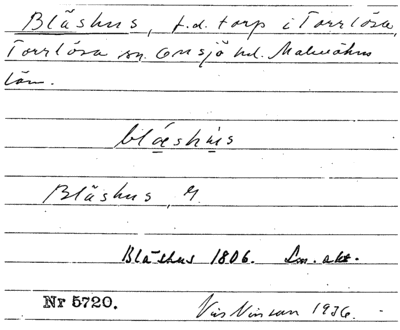 Blåshus, f.d. torp i Torrlösa,
Torrlösa sn. Onsjö hd. Malmöhus
län.
blåshus
Blåshus, G
Blåshus 1806. Lm. akt.
Nr 5720.
1936.